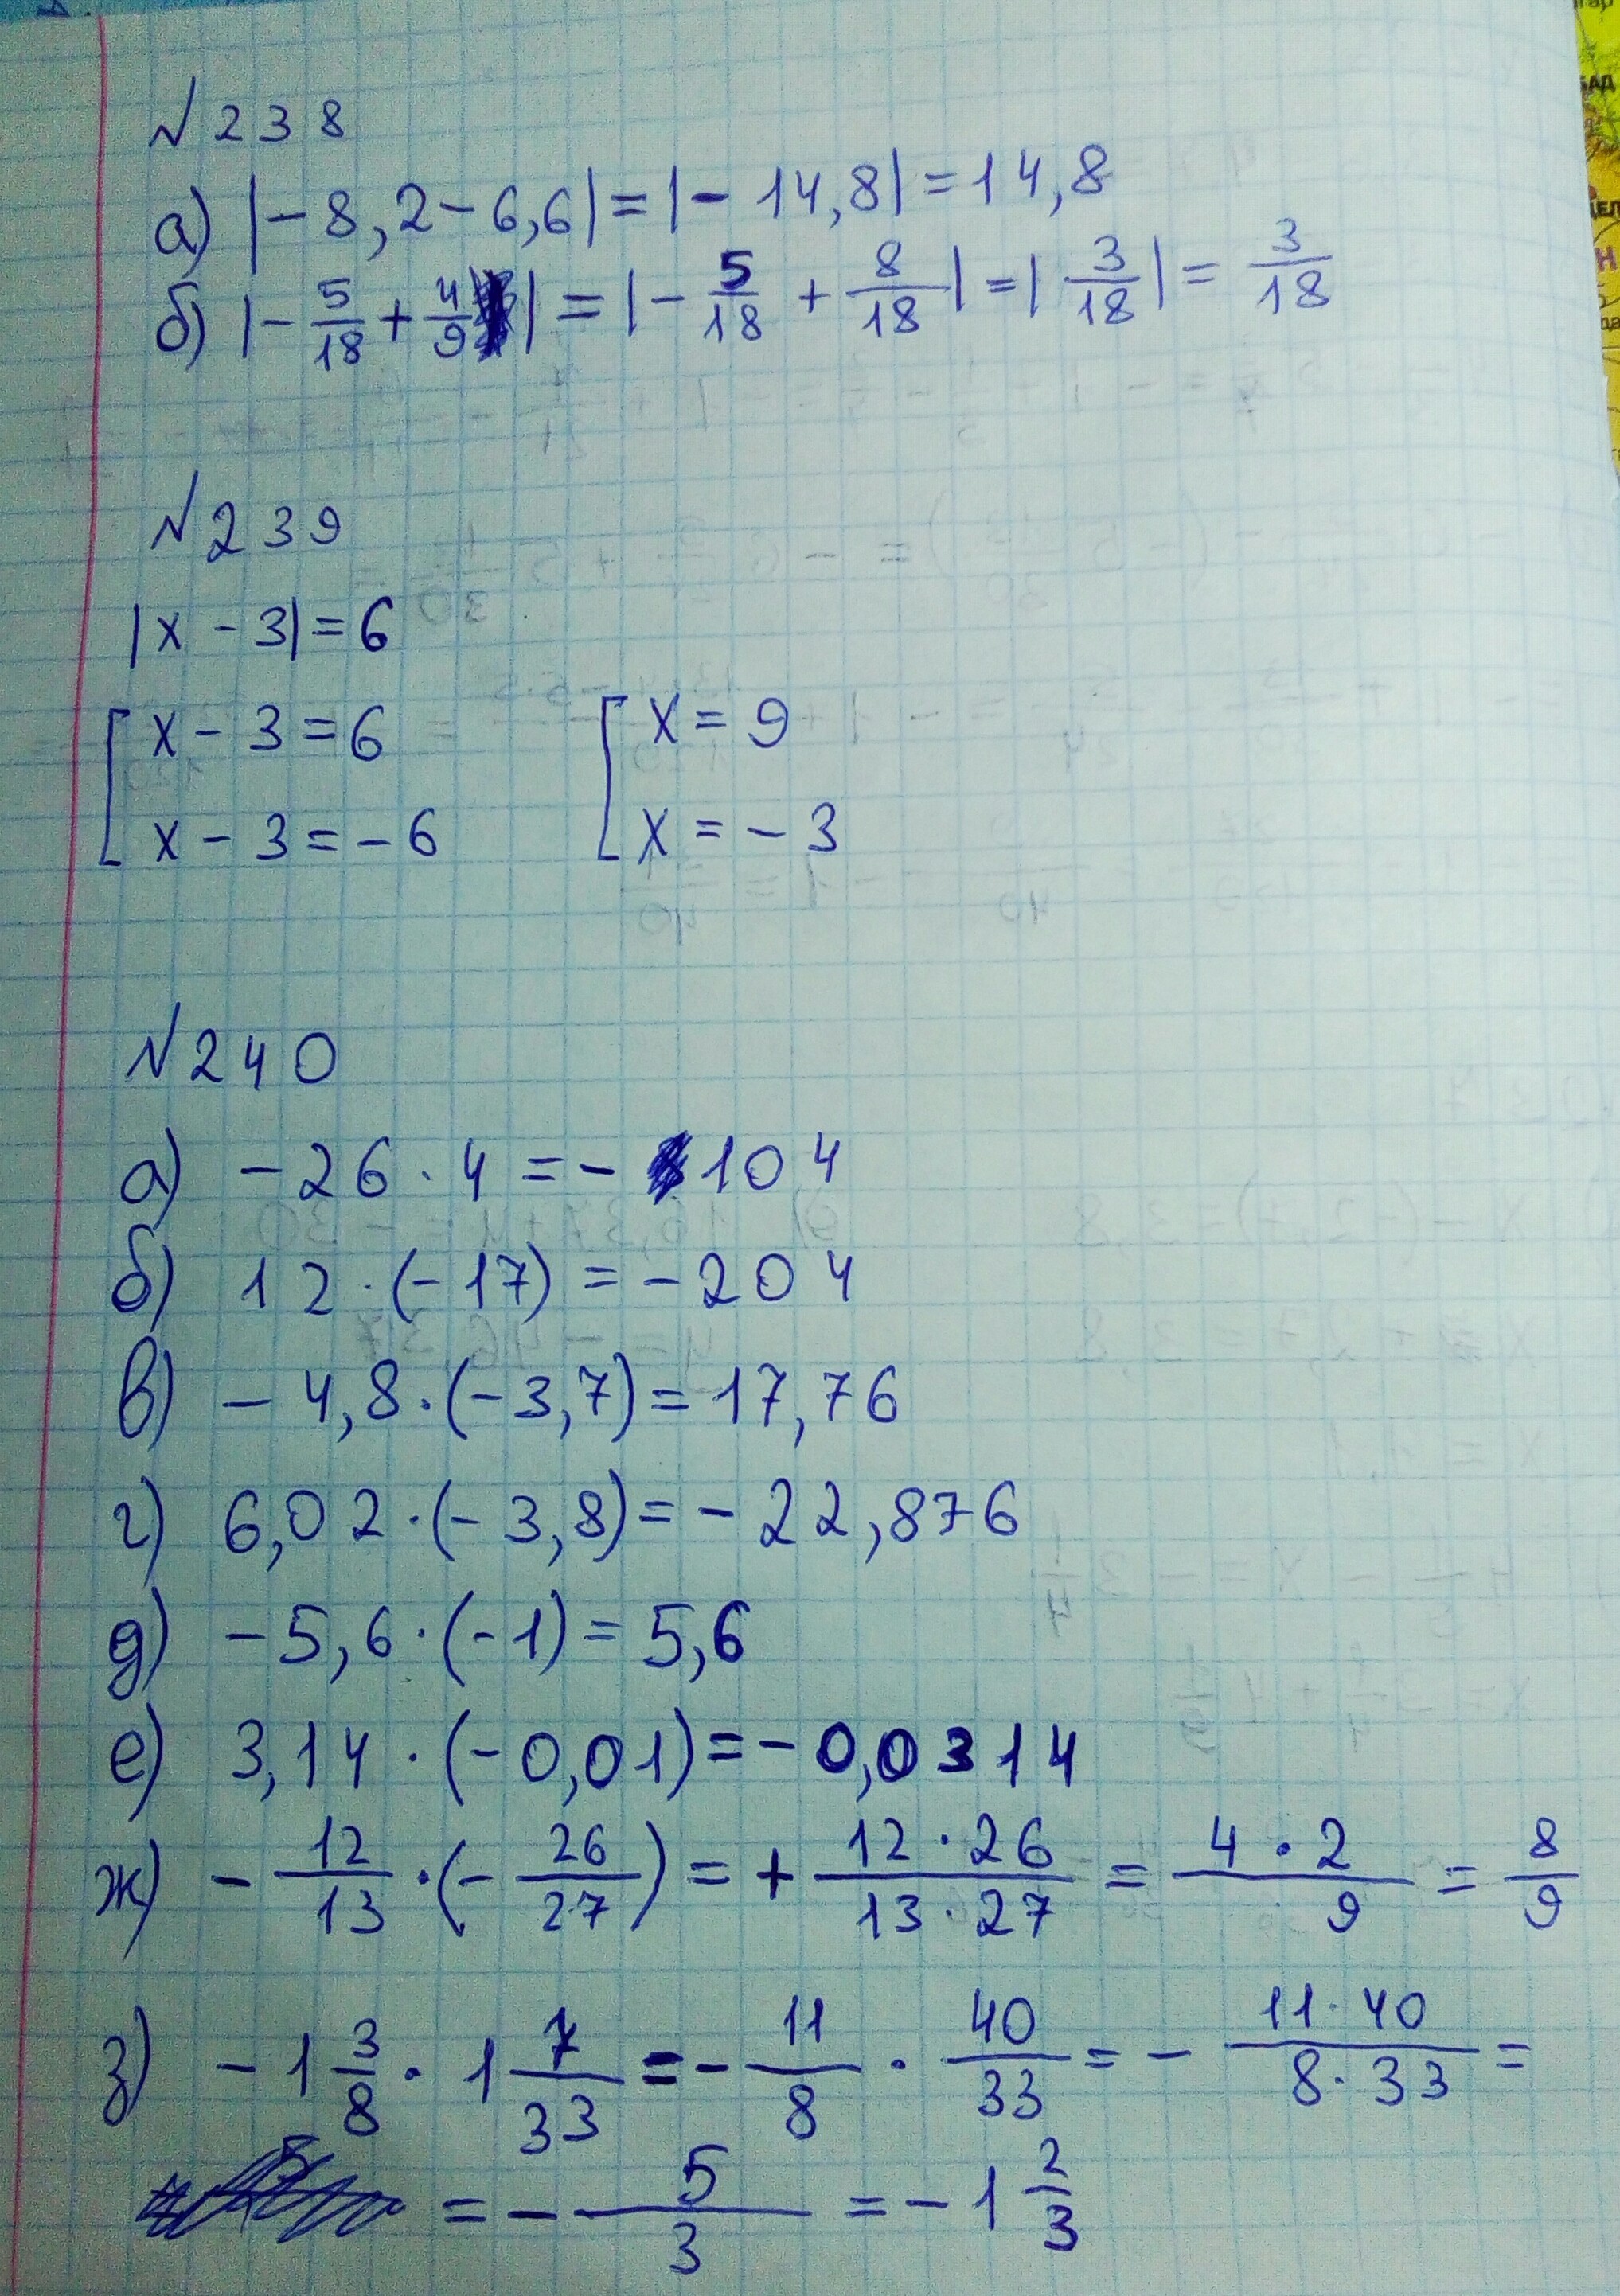 №238
а) |-8,2-6,6|=|-14,8|=14,8
б) |-5/18+4/9|=|-5/18+8/18|=|3/18|=3/18
№239
|x-3|=6
[x-3=6 [x=9
[x-3=-6 [x=-3
№240
а) -26·4=-104
б) 12·(-17)=-204
в) -4,8·(-3,7)=17,76
г) 6,02·(-3,8)=-22,876
д) -5,6·(-1)=5,6
е) 3,14·(-0,01)=-0,0314
ж) -12/13·(-26/27)=+12·26/13·27=4·2/9=8/9
з) -1 3/8·1 7/33=-11/8·40/33=-11·40/8·33=
=-5/3=-1 2/3